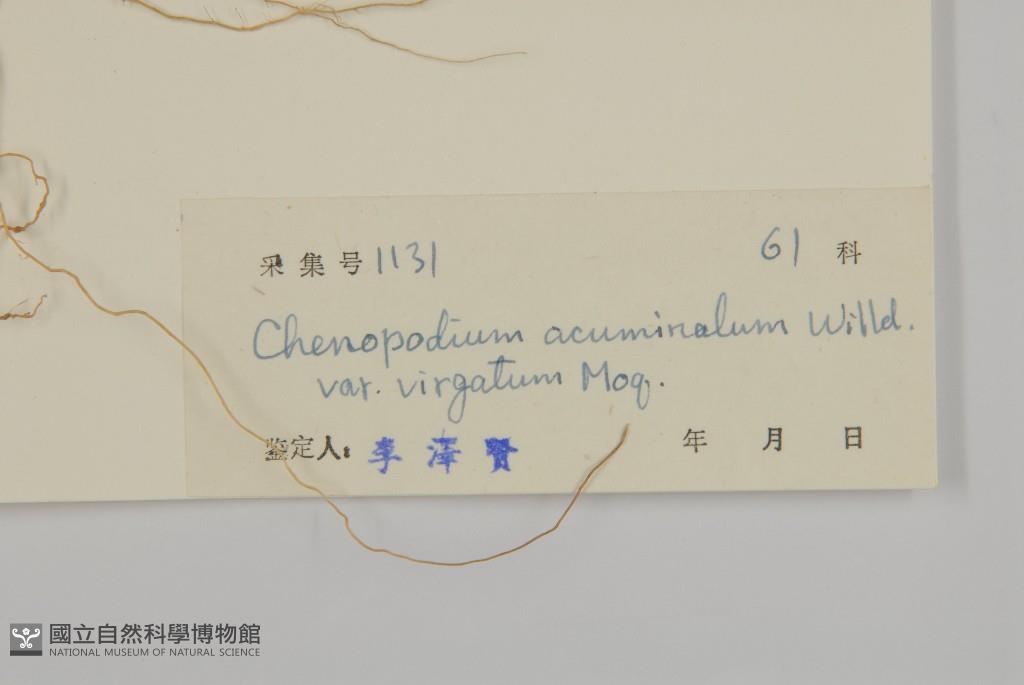 采集号 1131 61 科
Chenopodium acuminatum Willd.
var. virgatum Moq.
鉴定人: 李泽贤 年 月 日
國立自然科學博物館
NATIONAL MUSEUM OF NATURAL SCIENCE